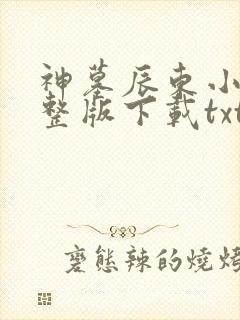 神墓辰東小
整版下載txt
變態辣的燒烤